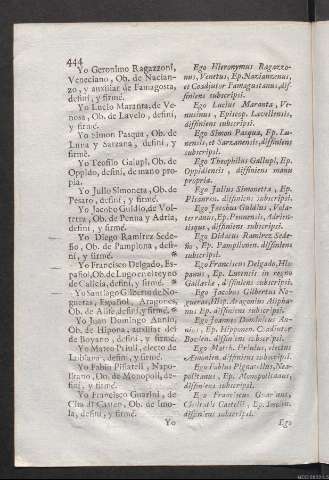 444
Yo Geronimo Ragazzoni,
Veneciano, Ob. de Nacian-
zo, y auxiliar de Famagosta,
defini, y firmé.
Yo Lucio Maranta, de Ve-
nosa, Ob. de Lavelo, defini,
y firmé.
Yo Simon Pasqua, Ob. de
Luna y Sarzana, defini, y
firmé.
Yo Teofilo Galupi, Ob. de
Oppido, defini, de mano pro-
pia.
Yo Julio Simoneta, Ob. de
Pesaro, defini, y firmé.
Yo Jacobo Guidio, de Vol-
terra, Ob. de Penna y Adria,
defini, y firmé.
Yo Diego Ramirez Sede-
ño, Ob. de Pamplona, defi-
ní, y firmé.
Yo Francisco Delgado, Es-
pañol, Ob. de Lugo en el reyno
de Galicia, defini, y firmé.
Yo Santiago Gilberto de No-
gueras, Español, Aragones,
Ob. de Alife, defini, y firmé.
Yo Juan Domingo Annio,
Ob. de Hipona, auxiliar del
de Boyano, defini, y firmé.
Yo Mateo Priuli, electo de
Lubiana, defini, y firmé.
Yo Fabio Piñateli, Napo-
litano, Ob. de Monopoli, de-
fini, y firmé.
Yo Francisco Guarini, de
Cita di Castelo, Ob. de Imo-
la, defini, y firmé.
Yo
Ego Hieronymus Ragazzo-
nus, Venetus, Ep. Nazianzenus,
et Coadjutor Famagustanus, dif-
finiens subscripsi.
Ego Lucius Maranta, Ve-
nusinus, Episcop. Lavellensis,
diffiniens subscripsi.
Ego Simon Pasqua, Ep. Lu-
nensis, et Sarzanensis, diffiniens
subscripsi.
Ego Theophilus Gallupi, Ep.
Oppidensis, diffiniens manu
propria.
Ego Julius Simonetta, Ep.
Pisauren. diffiniens subscripsi.
Ego Jacobus Guidius, Vola-
terranus, Ep. Pennensis, Adrien-
sisque, diffiniens subscripsi.
Ego Didacus Ramirez Sede-
ño, Ep. Pampilonen. diffiniens
subscripsi.
Ego Franciscus Delgado, His-
panus, Ep. Lucensis in regno
Galleciæ, diffiniens subscripsi.
Ego Jacobus Gilbertus No-
gueras, Hisp. Aragonius Alipha-
nus Ep. diffiniens subscripsi.
Ego Joannes Dominicus An-
nius, Ep. Hipponen. Coadiutor
Boeien. diffiniens subscripsi.
Ego Matth. Priulus, electus
Æmonien. diffiniens subscripsi.
Ego Fabius Pignatellus, Nea-
politanus, Ep. Monopolitanus,
diffiniens subscripsi.
Ego Franciscus Guarinus,
Civitatis Castelli, Ep. Imolen.
diffiniens subscripsi.
Ego